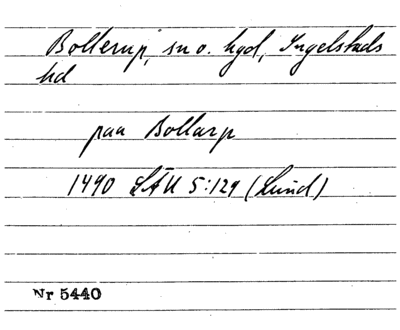 Bollerup, sn o. hgd, Ingelstads
hd
paa Bollarp
1490 LÄU 5:129 (Lund)
Nr 5440